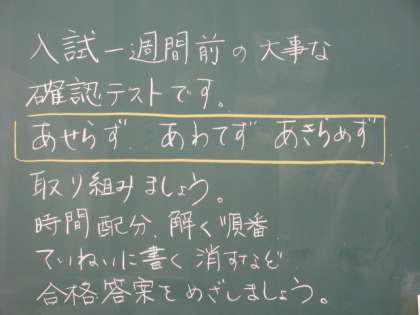 入試一週間前の大事な
確認テストです。
あせらず、あわてず あきらめず
取り組みましょう。
時間配分、解く順番
ていねいに書く 消すなど
合格答案をめざしましょう。